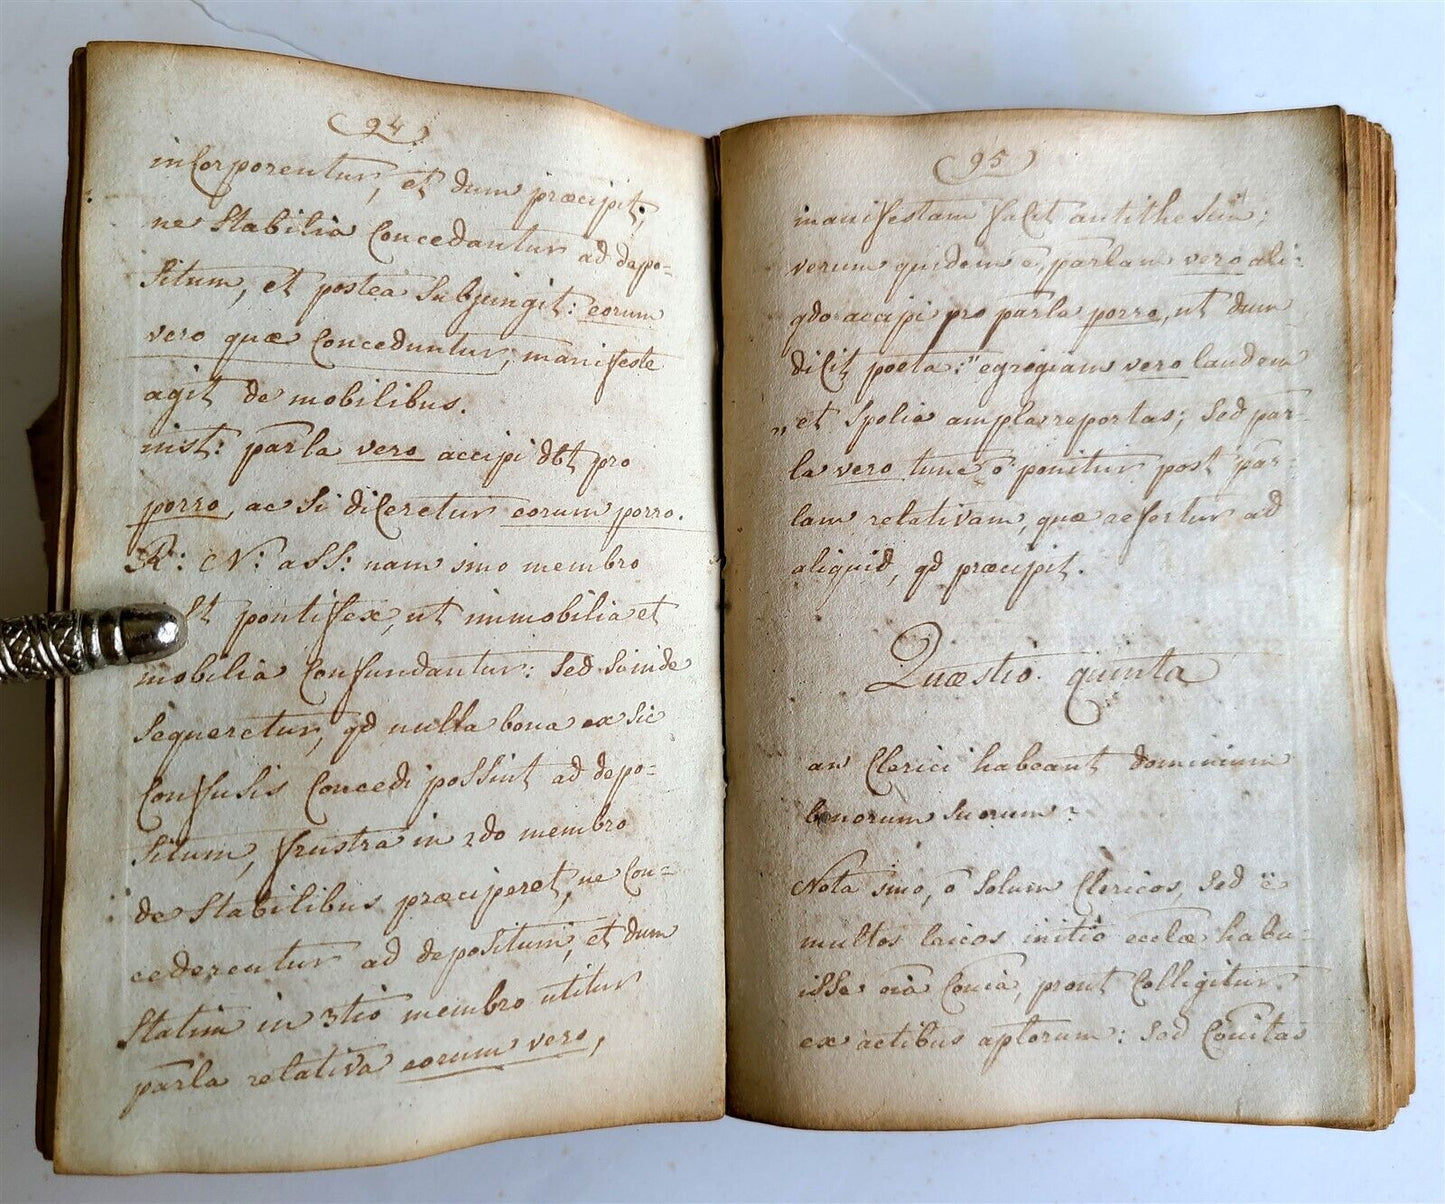 (94)
incorporentur, et dum præcipit,
ne stabilia concedantur ad depo=
situm, et postea subjungit: eorum
vero quæ conceduntur, manifeste
agit de mobilibus.
inst: parla vero accipi dbt pro
porro, ac si diceretur eorum porro.
R: N: ass: nam imo membro
pontifex, ut immobilia et
mobilia confundantur: sed so inde
sequeretur, qd nulla bona ex sic
confusis concedi possint ad depo=
situm, frustra in 2do membro
de stabilibus præciperet, ne con=
cederentur ad depositum, et dum
statim in 3tio membro utitur
parla relativa eorum vero,
(95)
manifestam facit antithesim;
verum quidem e, parlam vero ali=
qdo accipi pro parla porro, ut dum
dicit poeta: "egregiam vero laudem
„et spolia ampla reportas; sed par=
la vero tunc o ponitur post par=
lam relativam, quæ refertur ad
aliquid, qd præcipit.
Quæstio quinta
an Clerici habeant dominium
bonorum suorum?
Nota imo, o solum clericos, sed e
multos laicos initio ecclæ habu=
isse oia couia, prout colligitur
ex actibus aplorum: sed couitas